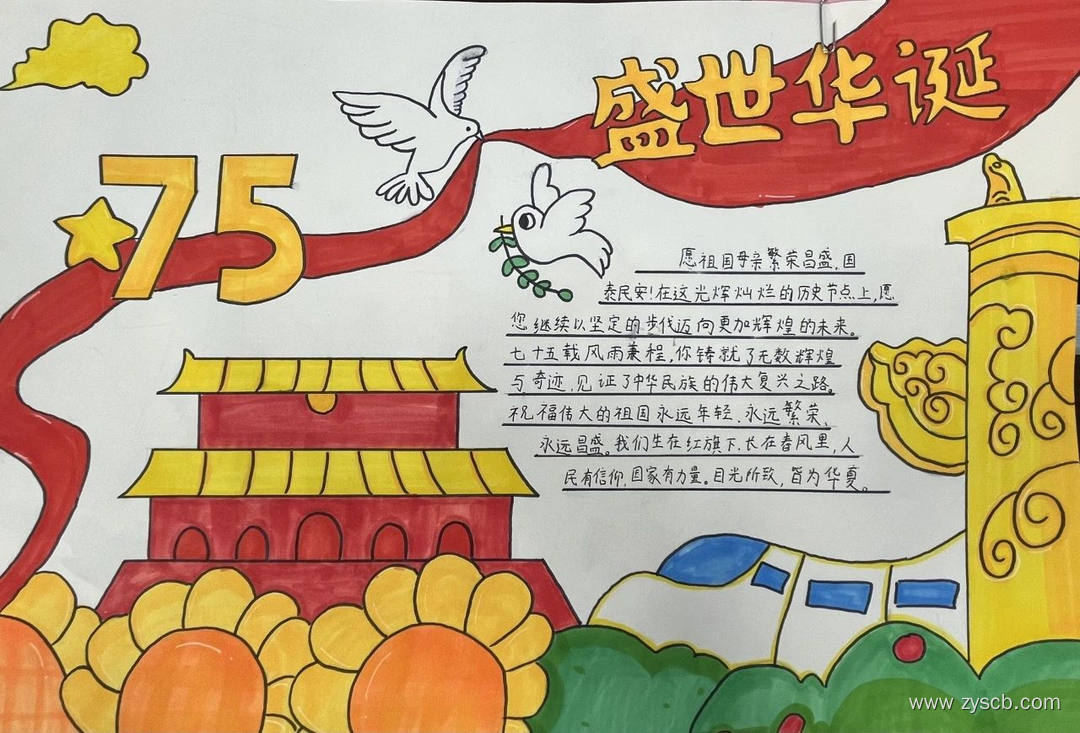 盛世华诞
75
愿祖国母亲繁荣昌盛,国
泰民安!在这光辉灿烂的历史节点上,愿
您继续以坚定的步伐迈向更加辉煌的未来。
七十五载风雨兼程,你铸就了无数辉煌
与奇迹,见证了中华民族的伟大复兴之路。
祝福伟大的祖国永远年轻、永远繁荣、
永远昌盛。我们生在红旗下,长在春风里,人
民有信仰,国家有力量。目光所致,皆为华夏。
www.zyscb.com